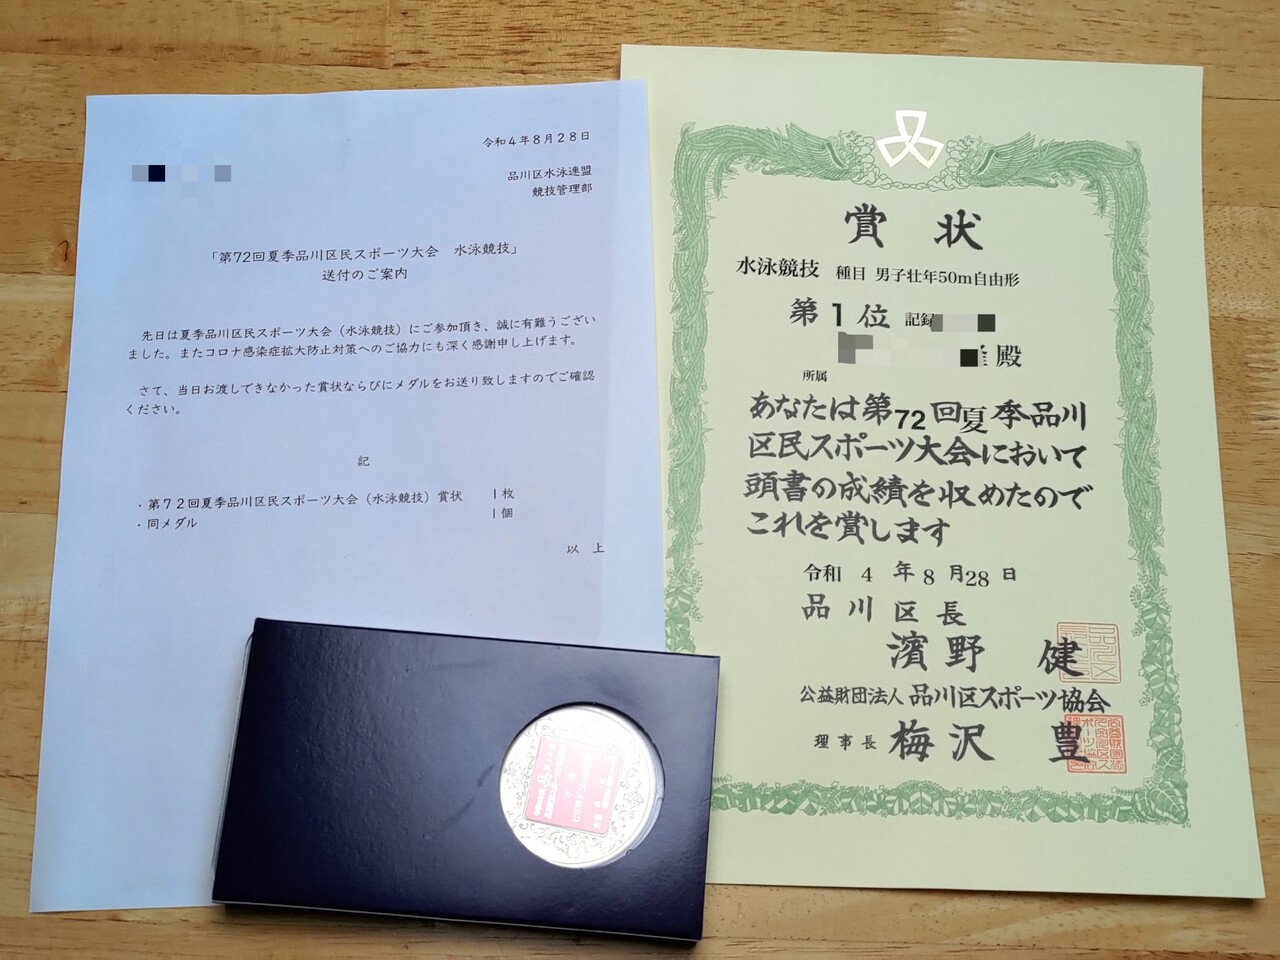 令和4年8月28日
品川区水泳連盟
競技管理部
「第72回夏季品川区民スポーツ大会 水泳競技」
送付のご案内
先日は夏季品川区民スポーツ大会（水泳競技）にご参加頂き、誠に有難うござい
ました。またコロナ感染症拡大防止対策へのご協力にも深く感謝申し上げます。
さて、当日お渡しできなかった賞状ならびにメダルをお送り致しますのでご確認
ください。
記
・第72回夏季品川区民スポーツ大会（水泳競技）賞状 1枚
・同メダル 1個
以 上
賞 状
水泳競技 種目 男子壮年50m自由形
第 1 位 記録
殿
所属
あなたは第72回夏季品川
区民スポーツ大会において
頭書の成績を収めたので
これを賞します
令和 4 年 8 月 28 日
品川区長
濱野 健
公益財団法人 品川区スポーツ協会
理事長 梅沢 豊